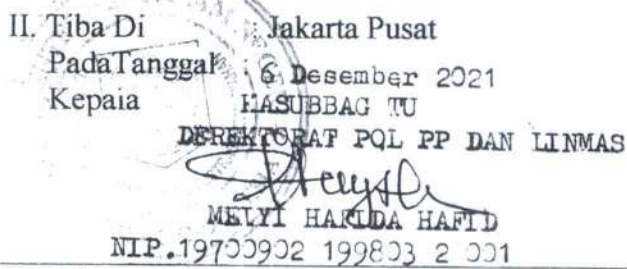 II. Tiba Di : Jakarta Pusat
PadaTanggal : 6 Desember 2021
Kepaia
KASUBBAG TU
DEREKTORAT POL PP DAN LINMAS
MELYI HARLDA HAFID
NIP.19700902 199803 2 001